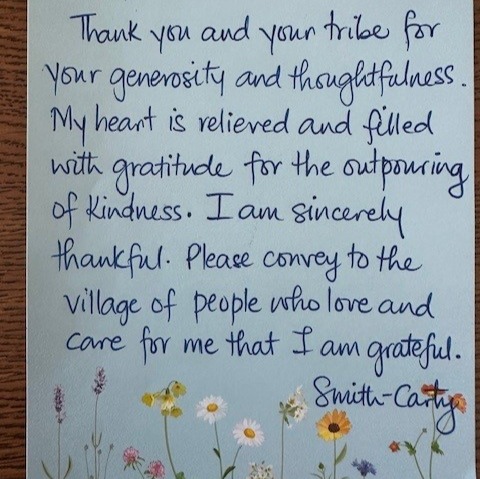 Thank you and your tribe for
your generosity and thoughtfulness.
My heart is relieved and filled
with gratitude for the outpouring
of kindness. I am sincerely
thankful. Please convey to the
village of people who love and
care for me that I am grateful.
Smith-Carty